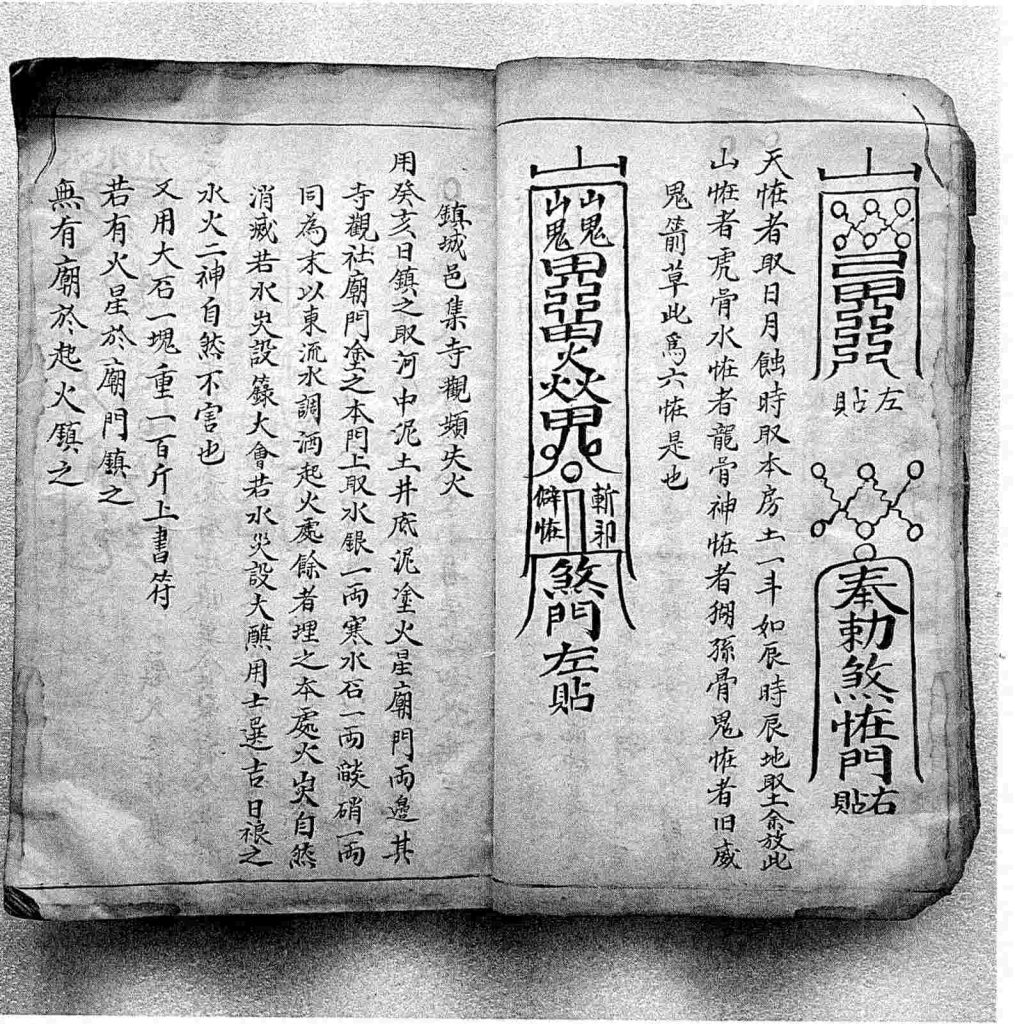 左貼
奉勅煞恠門
右貼
天恠者取日月蝕時取本房土一斗如辰時辰地取土余放此
山恠者虎骨水恠者龍骨神恠者猢孫骨鬼恠者旧威
鬼箭草此爲六恠是也
山鬼
山鬼
斬邪
僻恠
煞門
左貼
鎮城邑集寺觀頻失火
用癸亥日鎮之取河中泥土井底泥塗火星廟門両邉其
寺觀社廟門塗之本門上取水銀一両寒水石一両燄硝一両
同為末以東流水調洒起火處餘者埋之本處火灾自然
消滅若水灾設籙大會若水災設大醮用士選吉日禳之
水火二神自然不害也
又用大石一塊重一百斤上書符
若有火星於廟門鎮之
無有廟於起火鎮之